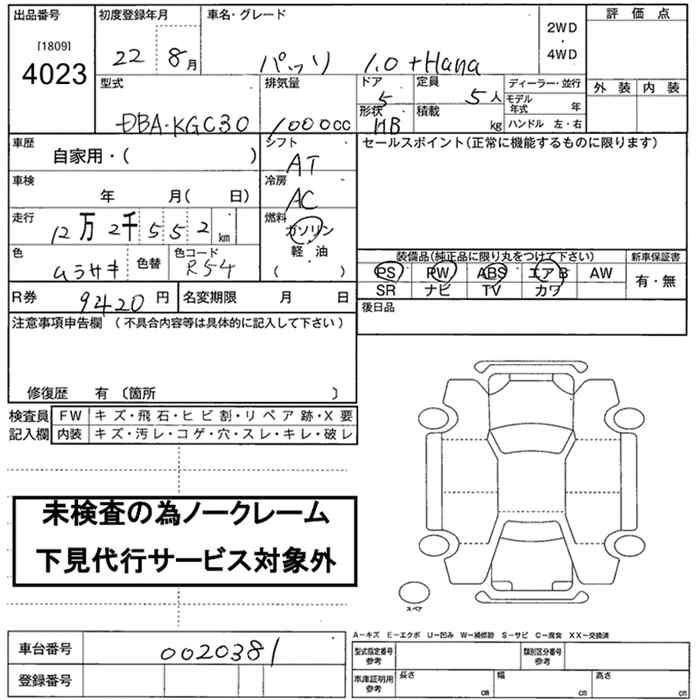 出品番号 初度登録年月 車名・グレード 評価点
[1809] 2WD
4023 22 8月 パッソ 1.0 +Hana ・
4WD
型式 排気量 ドア 定員 ディーラー・並行 外装 内装
5 5人 モデル年式 年
DBA-KGC30 1000cc 形状 積載 kg ハンドル 左・右
HB
車歴 シフト セールスポイント(正常に機能するものに限ります)
自家用・( ) AT
車検 冷房
年 月( 日) AC
走行 燃料
12万2千552km ガソリン
軽・油
色 色替 色コード ( ) 装備品(純正品に限り丸をつけて下さい) 新車保証書
ムラサキ R54 PS PW ABS エアB AW 有・無
SR ナビ TV カワ
R券 9420円 名変期限 月 日 後日品
注意事項申告欄(不具合内容等は具体的に記入して下さい)
修復歴 有 〔箇所 〕
検査員 FW キズ・飛石・ヒビ割・リペア跡・X要
記入欄 内装 キズ・汚レ・コゲ・穴・スレ・キレ・破レ
未検査の為ノークレーム
下見代行サービス対象外
スペア
A-キズ E-エクボ U-凹み W-補修跡 S-サビ C-腐食 XX-交換済
車台番号 0020381 型式指定番号 参考 類別区分番号 参考
登録番号 車庫証明用 参考 長さ cm 幅 cm 高さ cm